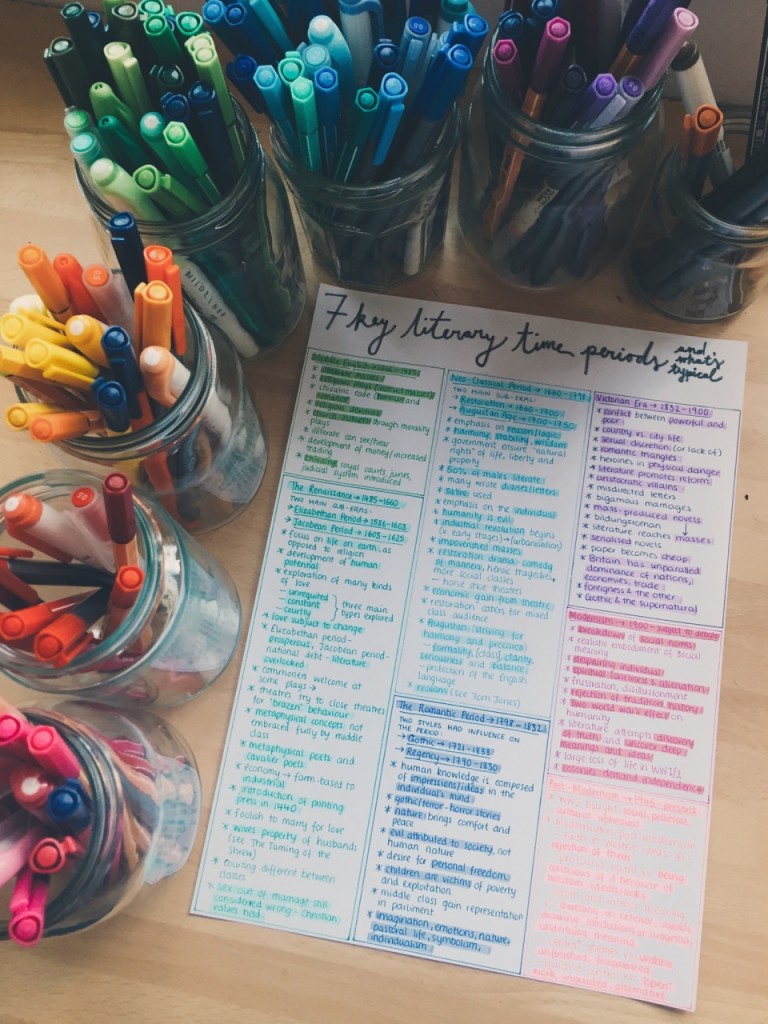 MILDLINER
7 key literary time periods and what's typical
* chivalric code (honour and
* religious services
* church instructs through morality
plays
* illiterate can see/hear
* development of money/increased
trading
* chivalry, royal courts, juries,
judicial system introduced
The Renaissance → 1485-1660
TWO MAIN SUB-ERAS:
→ Elizabethan Period → 1558-1603
→ Jacobean Period → 1603-1625
* focus on life on earth as
opposed to religion
* development of human
potential
* exploration of many kinds
of love
- unrequited
- constant
- courtly
three main
types explored
* love subject to change
* Elizabethan period-
prosperous, Jacobean period-
national debt - literature
overlooked
* commoners welcome at
some plays →
* theatres try to close theatres
for 'brazen' behaviour
* metaphysical concepts not
embraced fully by middle
class
* metaphysical poets and
cavalier poets
* economy → farm-based to
industrial
* introduction of printing
press in 1440
* foolish to marry for love
* wives property of husbands
(see The Taming of the
Shrew)
* courting different between
classes
* sex out of marriage still
considered wrong - Christian
values held
Neo-Classical Period → 1660-1798
TWO MAIN SUB-ERAS:
→ Restoration → 1660-1700
→ Augustan Age → 1700-1750
* emphasis on reason/logic,
harmony, stability, wisdom
* government ensure "natural
rights" of life, liberty and
property
* 50% of males literate
* many wrote diaries/letters
* satire used
* emphasis on the individual
* humanity is evil
* industrial revolution begins
(v early stages) → (urbanisation)
* impoverished masses
* restoration drama: comedy
of manners, heroic tragedies,
more social classes
* economic gain from theatre
* restoration caters for mixed
class audience
* Augustan (striving for
harmony and precision)
- formality, (class), clarity,
seriousness and balance
- protection of the English
language
* realism (see Tom Jones)
The Romantic Period → 1798-1832
TWO STYLES HAD INFLUENCE ON
THE PERIOD:
→ Gothic →
→ Regency →
* human knowledge is composed
of impressions/ideas in the
individual's mind
* gothic/terror-horror stories
* nature brings comfort and
peace
* evil attributed to society, not
human nature
* desire for personal freedom
* children are victims of poverty
and exploitation
* middle class gain representation
in parliment
* imagination, emotions, nature,
pastoral life, symbolism,
individualism
Victorian Era → 1832-1900
* conflict between powerful and
poor
* country vs. city life
* sexual discretion (or lack of)
* romantic triangles
* heroines in physical danger
* literature promotes reform
* aristocratic villains
* misdirected letters
* bigamous marriages
* mass-produced novels
* bildungsroman
* literature reaches masses
* serialised novels
* paper becomes cheap
* Britain has unparalled
dominance of nations,
economies, trade
* foreigness & the other
* Gothic & the supernatural
Modernism → 1900- subject to debate
* breakdown of social norms
* realistic embodiment of social
meaning
* despairing individual
* spiritual loneliness & alienation
* frustration, disillusionment
* rejection of tradition, history
* Two world wars effect on
humanity
* literature attempts discovery
of truth and uncover deep
meanings and ideas
* large loss of life in WW1/2
* colonies demand independence
Post-Modernism → 1945-present
rejection of them